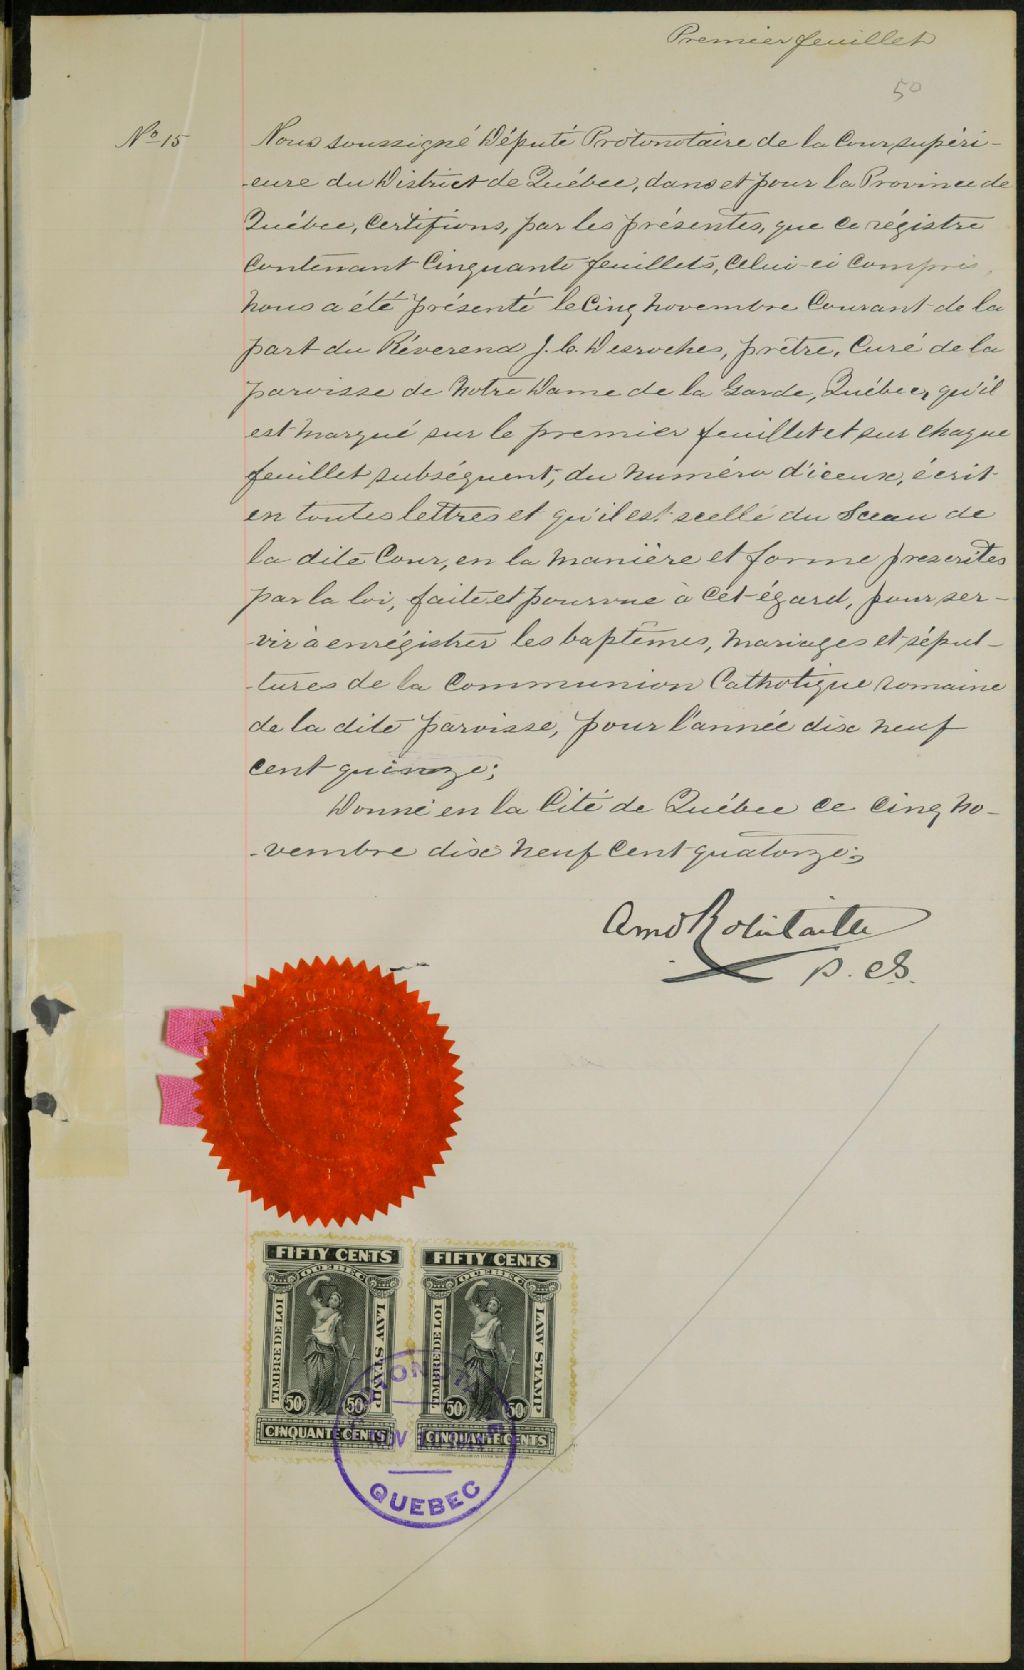 Premier feuillet
50
No 15
Nous soussigné Député Protonotaire de la Cour supéri-
-eure du District de Québec, dans et pour la Province de
Québec, Certifions, par les présentes, que ce régistre
Contenant Cinquante feuillets, Celui-ci Compris,
nous a été présenté le Cinq Novembre Courant de la
part du Réverend J. C. Desroches, prêtre, Curé de la
paroisse de Notre Dame de la Garde, Québec, qu'il
est marqué sur le premier feuillet et sur chaque
feuillet subséquent, du numéro d'iceux, écrit
en toutes lettres et qu'il est scellé du Sceau de
la dite Cour, en la manière et forme prescrites
par la loi, faite et pourvue à Cet égard, pour ser-
vir à enrégistrer les baptêmes, mariages et sépul-
-tures de la Communion Catholique romaine
de la dite paroisse, pour l'année dix neuf
cent quinze;
Donné en la Cité de Québec ce Cinq No-
-vembre dix neuf Cent quatorze;
Amd Robitaille
P. C. S.
FIFTY CENTS
QUEBEC
TIMBRE DE LOI
LAW STAMP
50c 50c
CINQUANTE CENTS
FIFTY CENTS
QUEBEC
TIMBRE DE LOI
LAW STAMP
50c 50c
CINQUANTE CENTS
NOV
QUEBEC